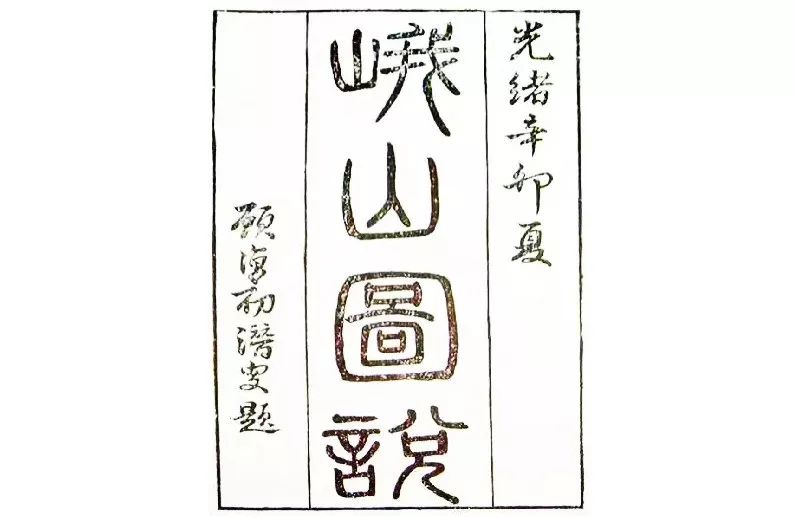 光緒辛卯夏
峨山圖說
顧復初潛叟題